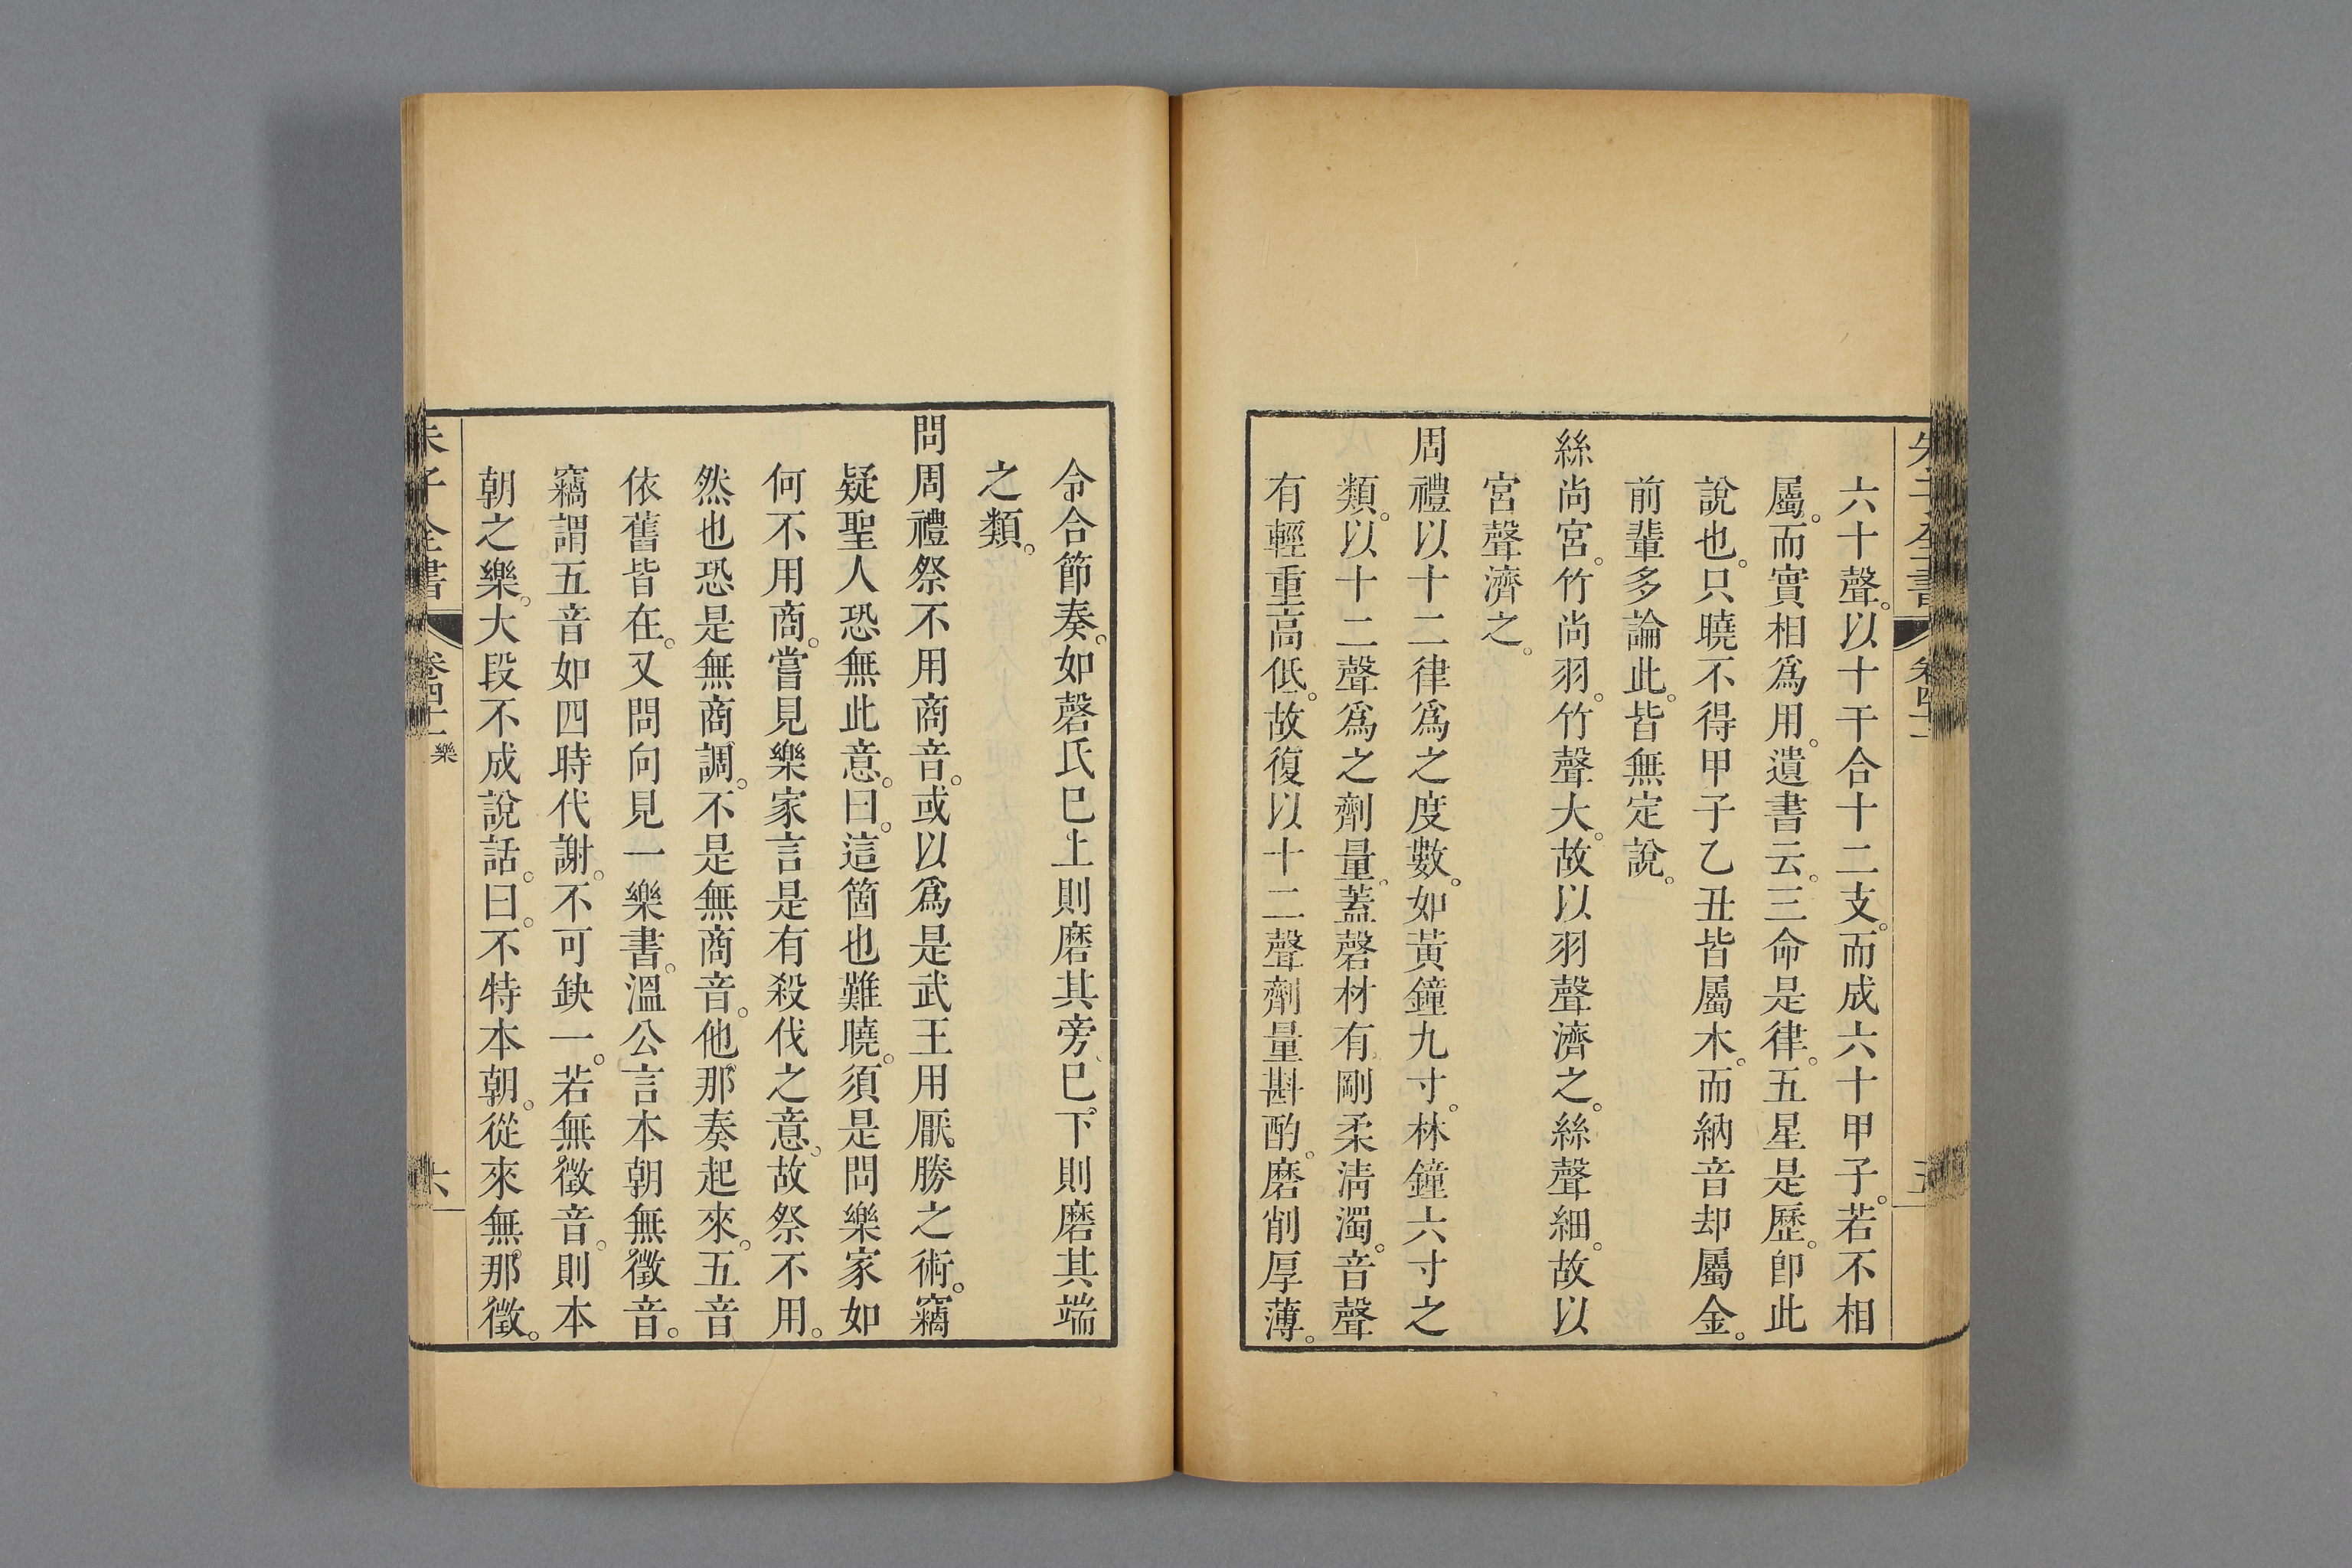 六十聲。以十干合十二支。而成六十甲子。若不相
屬。而實相爲用。遺書云。三命是律。五星是歷。卽此
說也。只曉不得甲子乙丑皆屬木。而納音却屬金。
前輩多論此。皆無定說。
絲尚宮。竹尚羽。竹聲大。故以羽聲濟之。絲聲細。故以
宮聲濟之。
周禮以十二律爲之度數。如黃鐘九寸。林鐘六寸之
類。以十二聲爲之劑量。蓋磬材有剛柔淸濁。音聲
有輕重高低。故復以十二聲劑量斟酌。磨削厚薄。
令合節奏。如磬氏巳上則磨其旁、巳下則磨其端
之類。
問周禮祭不用商音。或以爲是武王用厭勝之術。竊
疑聖人恐無此意。曰。這箇也難曉。須是問樂家如
何不用商。嘗見樂家言是有殺伐之意。故祭不用。
然也恐是無商調。不是無商音。他那奏起來。五音
依舊皆在。又問向見一樂書。溫公言本朝無徵音。
竊謂五音如四時代謝。不可缺一。若無徵音。則本
朝之樂。大段不成說話。曰。不特本朝。從來無那徵。
朱子全書
卷四十一
樂
六